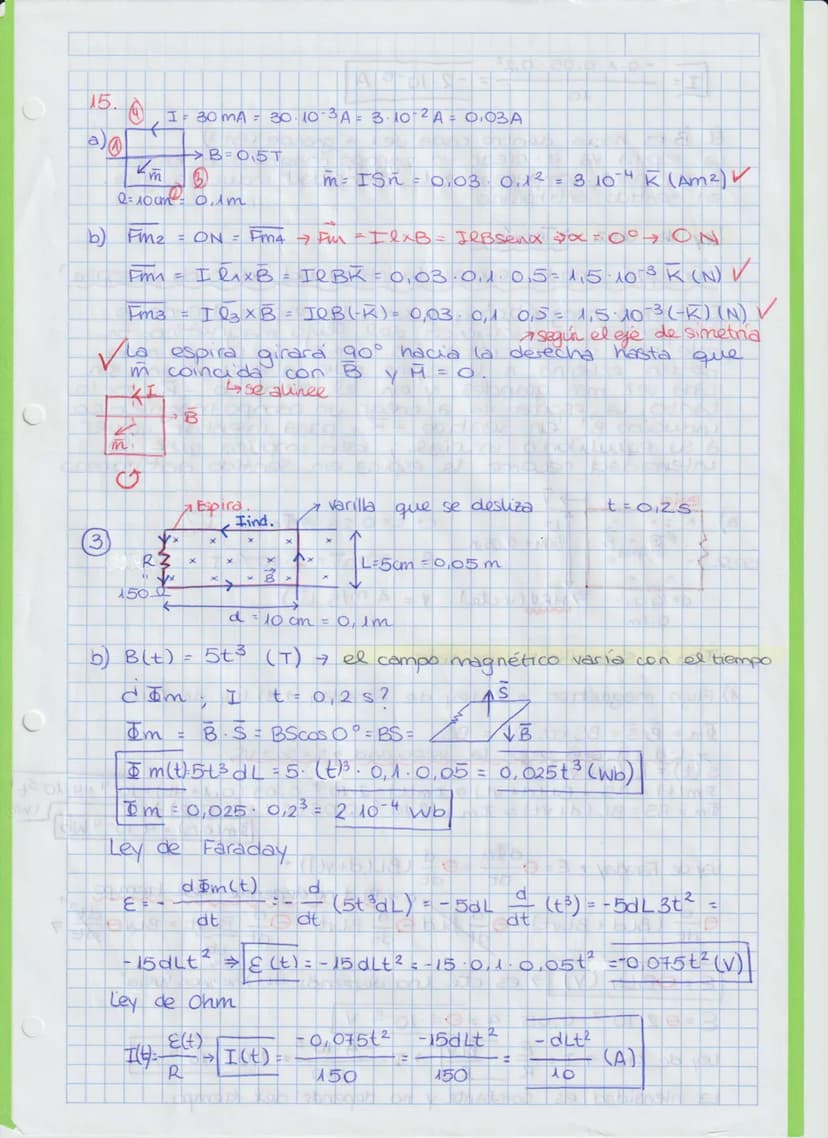 15. ④ I = 30mA = 30·10⁻³A = 3·10⁻²A = 0,03A
a) ① → B = 0,5T
m̄ ③ m̄ = ISn̄ = 0,03 · 0,1² = 3 10⁻⁴ K̄ (Am²) ✓
l = 10cm ② = 0,1m
b) F̄m₂ = 0N = F̄m₄ → F̄m = I l × B = IlBsenα → α = 0° → 0N
F̄m₁ = I l̄₁ × B̄ = IlBK̄ = 0,03 · 0,1 · 0,5 = 1,5 · 10⁻³ K̄ (N) ✓
F̄m₃ = I l̄₃ × B̄ = IlB(-K̄) = 0,03 · 0,1 0,5 = 1,5 · 10⁻³ (-K̄) (N) ✓
→ según el eje de simetría
✓ La espira girará 90° hacia la derecha hasta que
m̄ coincida con B̄ y M̄ = 0.
↳ se alinee
I
→ B̄
m̄
Espira. → varilla que se desliza t = 0,2s
③ Iind.
R L = 5cm = 0,05 m
B̄
150 Ω
d = 10 cm = 0,1m
b) B(t) = 5t³ (T) → el campo magnético varía con el tiempo
d Φm ; I t = 0,2 s?
S̄
Φm = B̄ · S̄ = BScos0° = BS =
B̄
Φm(t)·5t³dL = 5 · (t)³ · 0,1 · 0,05 = 0,025t³ (Wb)
Φm = 0,025 · 0,2³ = 2·10⁻⁴ Wb
Ley de Faraday
ε = - dΦm(t)/dt = - d/dt (5t³dL) = -5dL d/dt (t³) = -5dL3t² =
-15dLt² ⇒ ε(t) = -15dLt² = -15 · 0,1 · 0,05t² = -0,075t² (V)
Ley de Ohm
I(t) = ε(t)/R → I(t) = -0,075t²/150 = -15dLt²/150 = -dLt²/10 (A)